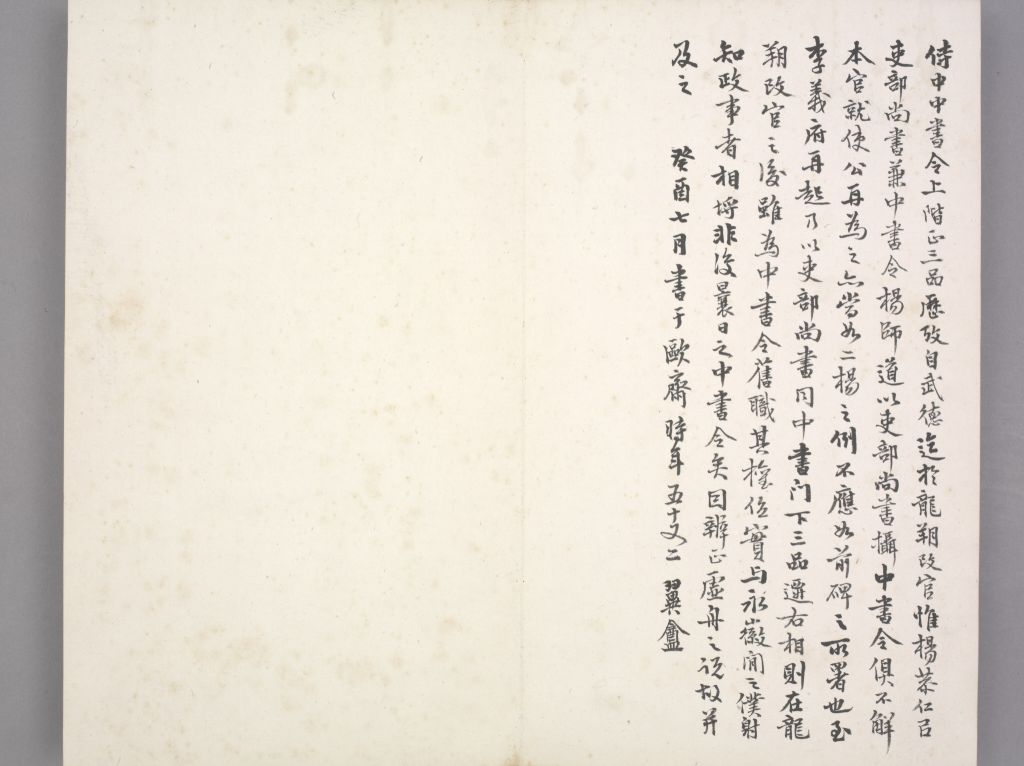 侍中中書令上階正三品歷攷自武德迄於龍朔改官惟楊恭仁以
吏部尚書兼中書令楊師道以吏部尚書攝中書令俱不解
本官就使公再為之亦當如二楊之例不應如前碑之所署也至
李義府再起乃以吏部尚書同中書门下三品遷右相則在龍
朔改官之後雖為中書令舊職其權位實与永徽間之僕射
知政事者相埒非復曩日之中書令矣因辨正虛舟之説故并
及之　癸酉七月書于歐齋時年五十又二　翼盦